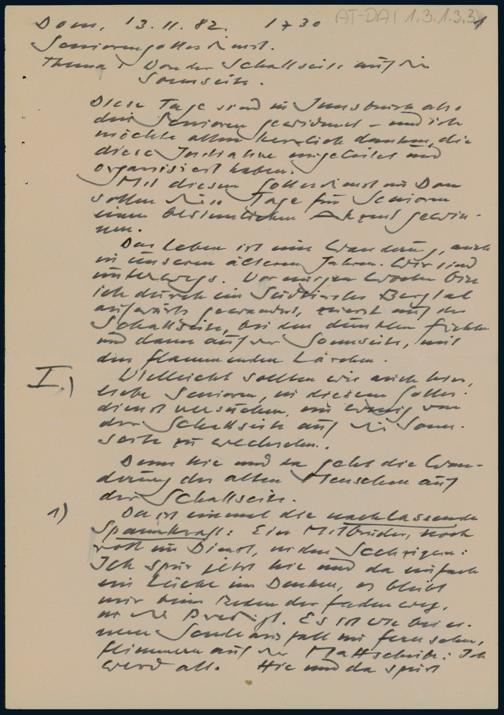 AT-DAI 1.3.1.3.3
1
Dom, 13.11.82. 1730
Seniorengottesdienst.
Thema: Von der Schattseite auf die
Sonnseite.
Diese Tage sind in Innsbruck also
den Senioren gewidmet – und ich
möchte allen herzlich danken, die
diese Initiative eingeleitet und
organisiert haben.
Mit diesem Gottesdienst im Dom
sollen diese Tage für Senioren
einen besinnlichen Akzent gewin-
nen.
Das Leben ist eine Wanderung, auch
in unseren älteren Jahren. Wir sind
unterwegs. Vor einigen Wochen bin
ich durch ein Südtiroler Bergtal
aufwärts gewandert, zuerst auf der
Schattseite, bei den dunklen Fichten
und dann auf der Sonnseite, mit
den flammenden Lärchen.
I.) Vielleicht sollten wir auch hier,
liebe Senioren, in diesem Gottes-
dienst versuchen, ein wenig von
der Schattseite auf die Sonn-
seite zu wechseln.
Denn hie und da geht die Wan-
derung des alten Menschen auf
der Schattseite.
1) Da ist einmal die nachlassende
Spannkraft: Ein Mitbruder, noch
voll im Dienst, in den Sechzigern:
Ich spür jetzt hie und da einfach
ein Lücke im Denken, es bleibt
mir beim Reden der Faden weg,
in der Predigt. Es ist wie bei ei-
nem Sendeausfall im Fernsehen,
Flimmern auf der Mattscheibe: Ich
werd alt. Hie und da spürt